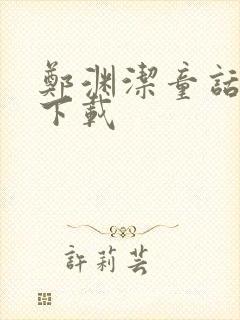 鄭淵潔童話
下載
許莉芸